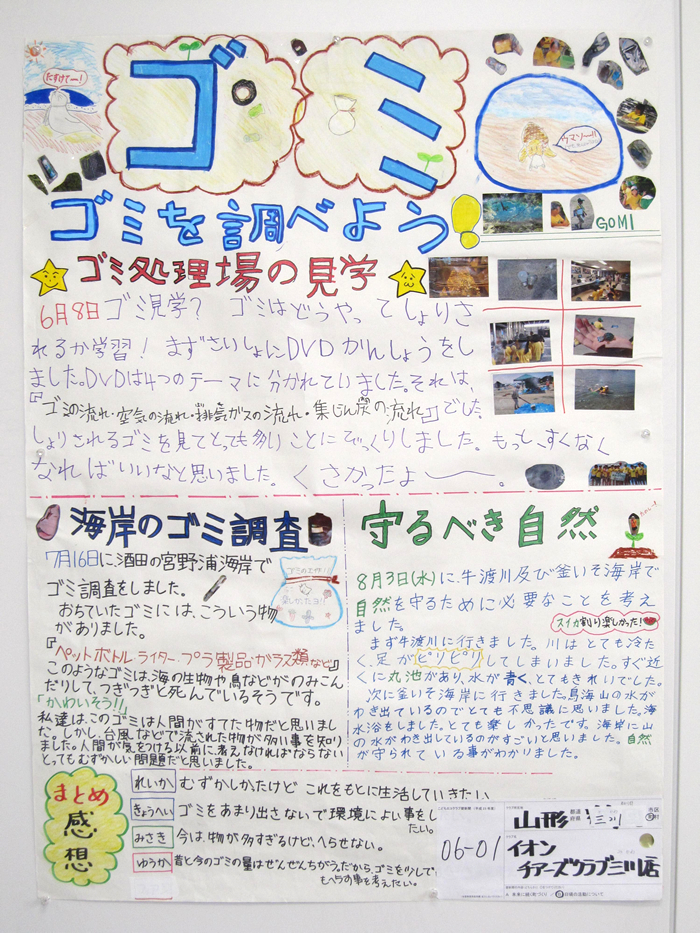 ゴミ
たすけてー!
ウマソー!!
ゴミを調べよう!
GOMI
ゴミ処理場の見学
6月8日ゴミ見学? ゴミはどうやってしょりさ
れるか学習! まずさいしょにDVDかんしょうをし
ました。DVDは4つのテーマに分かれていました。それは、
『ゴミの流れ・空気の流れ・排気ガスの流れ・集じん炭の流れ』でした。
しょりされるゴミを見てとっても多いことにびっくりしました。もっと、すくなく
なればいいなと思いました。くさかったよ〜。
海岸のゴミ調査
7月16日に酒田の宮野浦海岸で
ゴミ調査をしました。
おちていたゴミには、こういう物
がありました。
『ペットボトル・ライター・プラ製品・ガラス類など』
このようなゴミは、海の生物や鳥などがのみこん
だりして、つぎつぎと死んでいるそうです。
「かわいそう!!」
私達は、このゴミは人間がすてた物だと思いまし
た。しかし、台風などで流された物が多い事を知り
ました。人間が気をつける以前に考えなければならない
とってもむずかしい問題だと思いました。
守るべき自然
8月3日(水)に、牛渡川及び釜いそ海岸で
自然を守るために必要なことを考え
ました。
スイカ割り楽しかった!
まず牛渡川に行きました。川はとても冷た
く、足がピリピリしてしまいました。すぐ近
くに丸池があり、水が青く、とてもきれいでした。
次に釜いそ海岸に行きました。鳥海山の水が
わき出ているのでとても不思議に思いました。海
水浴をしました。とても楽しかったです。海岸に山
の水がわき出しているのがすごいと思いました。自然
が守られている事がわかりました。
まとめ
感想
れいか むずかしかたけど これをもとに生活していきたい
きょうへい ゴミをあまり出さないで環境によい事をし
たい。
みさき 今は、物が多すぎるけど、へらせない。
ゆうか 昔と今のゴミの量はぜんぜんちがう。だから、ゴミを少しで
もへらす事を考えたい。
06-01
山形 三川
イオン
チアーズクラブ三川店